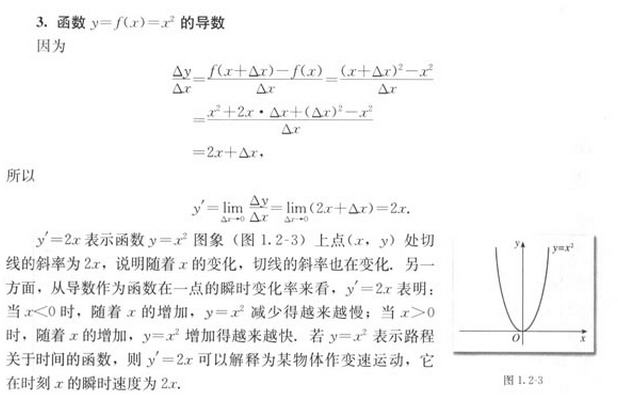 3. 函数 y=f(x)=x² 的导数
因为
Δy/Δx=f(x+Δx)-f(x)/Δx=(x+Δx)²-x²/Δx
=x²+2x·Δx+(Δx)²-x²/Δx
=2x+Δx,
所以
y′=lim Δx→0 Δy/Δx=lim Δx→0 (2x+Δx)=2x.
y′=2x 表示函数 y=x² 图象（图 1.2-3）上点(x, y) 处切
线的斜率为 2x，说明随着 x 的变化，切线的斜率也在变化. 另一
方面，从导数作为函数在一点的瞬时变化率来看，y′=2x 表明：
当 x<0 时，随着 x 的增加，y=x² 减少得越来越慢；当 x>0
时，随着 x 的增加，y=x² 增加得越来越快. 若 y=x² 表示路程
关于时间的函数，则 y′=2x 可以解释为某物体作变速运动，它
在时刻 x 的瞬时速度为 2x.
y
y=x²
O
x
图 1.2-3